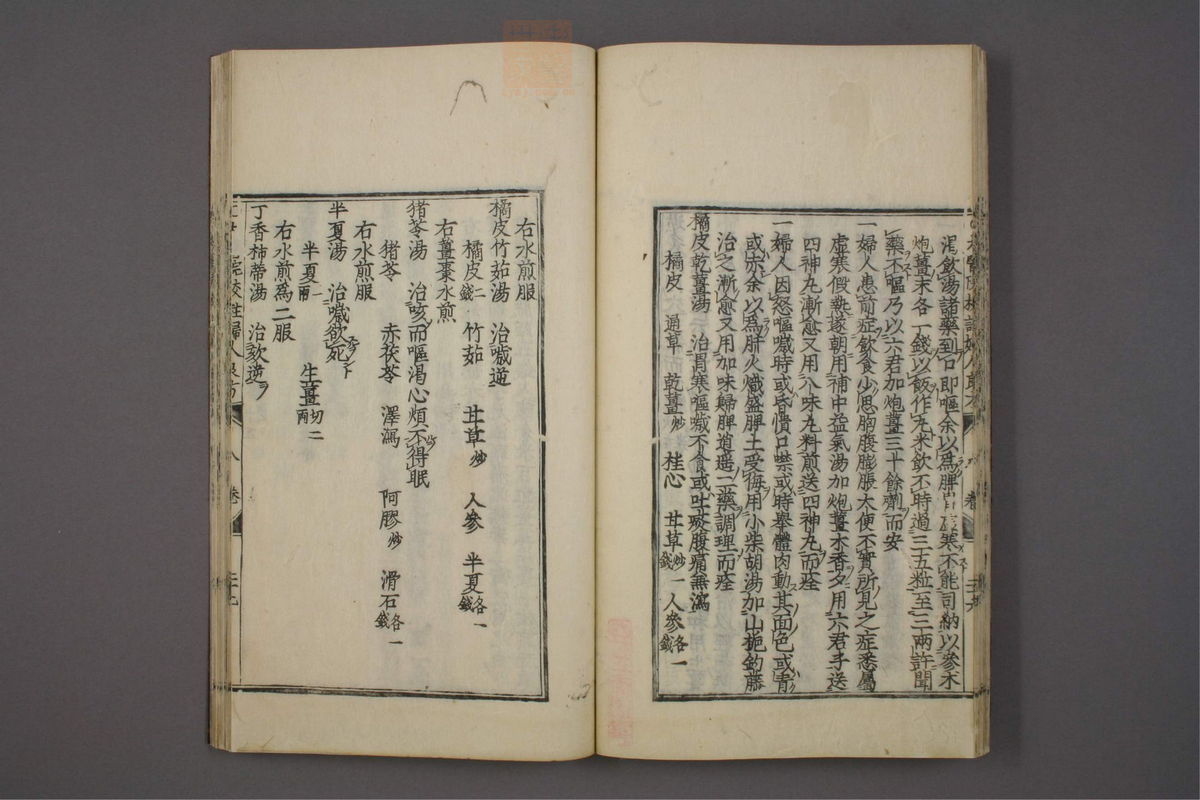 渴飲湯諸藥到口即嘔余以爲脾胃虛寒不能司納以參朮
炮薑末各一錢以飯作丸米飲不時過三五粒至三兩許聞
藥不嘔乃以六君加炮薑三十餘劑而安
一婦人患前症飲食少思胸腹膨脹大便不實所見之症悉屬
虛寒假熱遂朝用補中益氣湯加炮薑木香夕用六君子送
四神丸漸愈又用八味丸料煎送四神丸而痊
一婦人因怒嘔噦時或昏憒口噤或時舉體肉動其面色或青
或赤余以爲肝火熾盛脾土受侮用小柴胡湯加山梔鈎藤
治之漸愈又用加味歸脾逍遙二藥調理而痊
橘皮乾薑湯 治胃寒嘔噦不食或吐痰腹痛無瀉
橘皮 通草 乾薑炒 桂心 甘草炒一錢 人參各一錢
右水煎服
橘皮竹茹湯 治噦逆
橘皮二錢 竹茹 甘草炒 人參 半夏各一錢
右薑棗水煎
猪苓湯 治咳而嘔渴心煩不得眠
猪苓 赤茯苓 澤瀉 阿膠炒 滑石各一錢
右水煎服
半夏湯 治噦欲死
半夏一兩 生薑切二兩
右水煎爲二服
丁香柿蒂湯 治欬逆